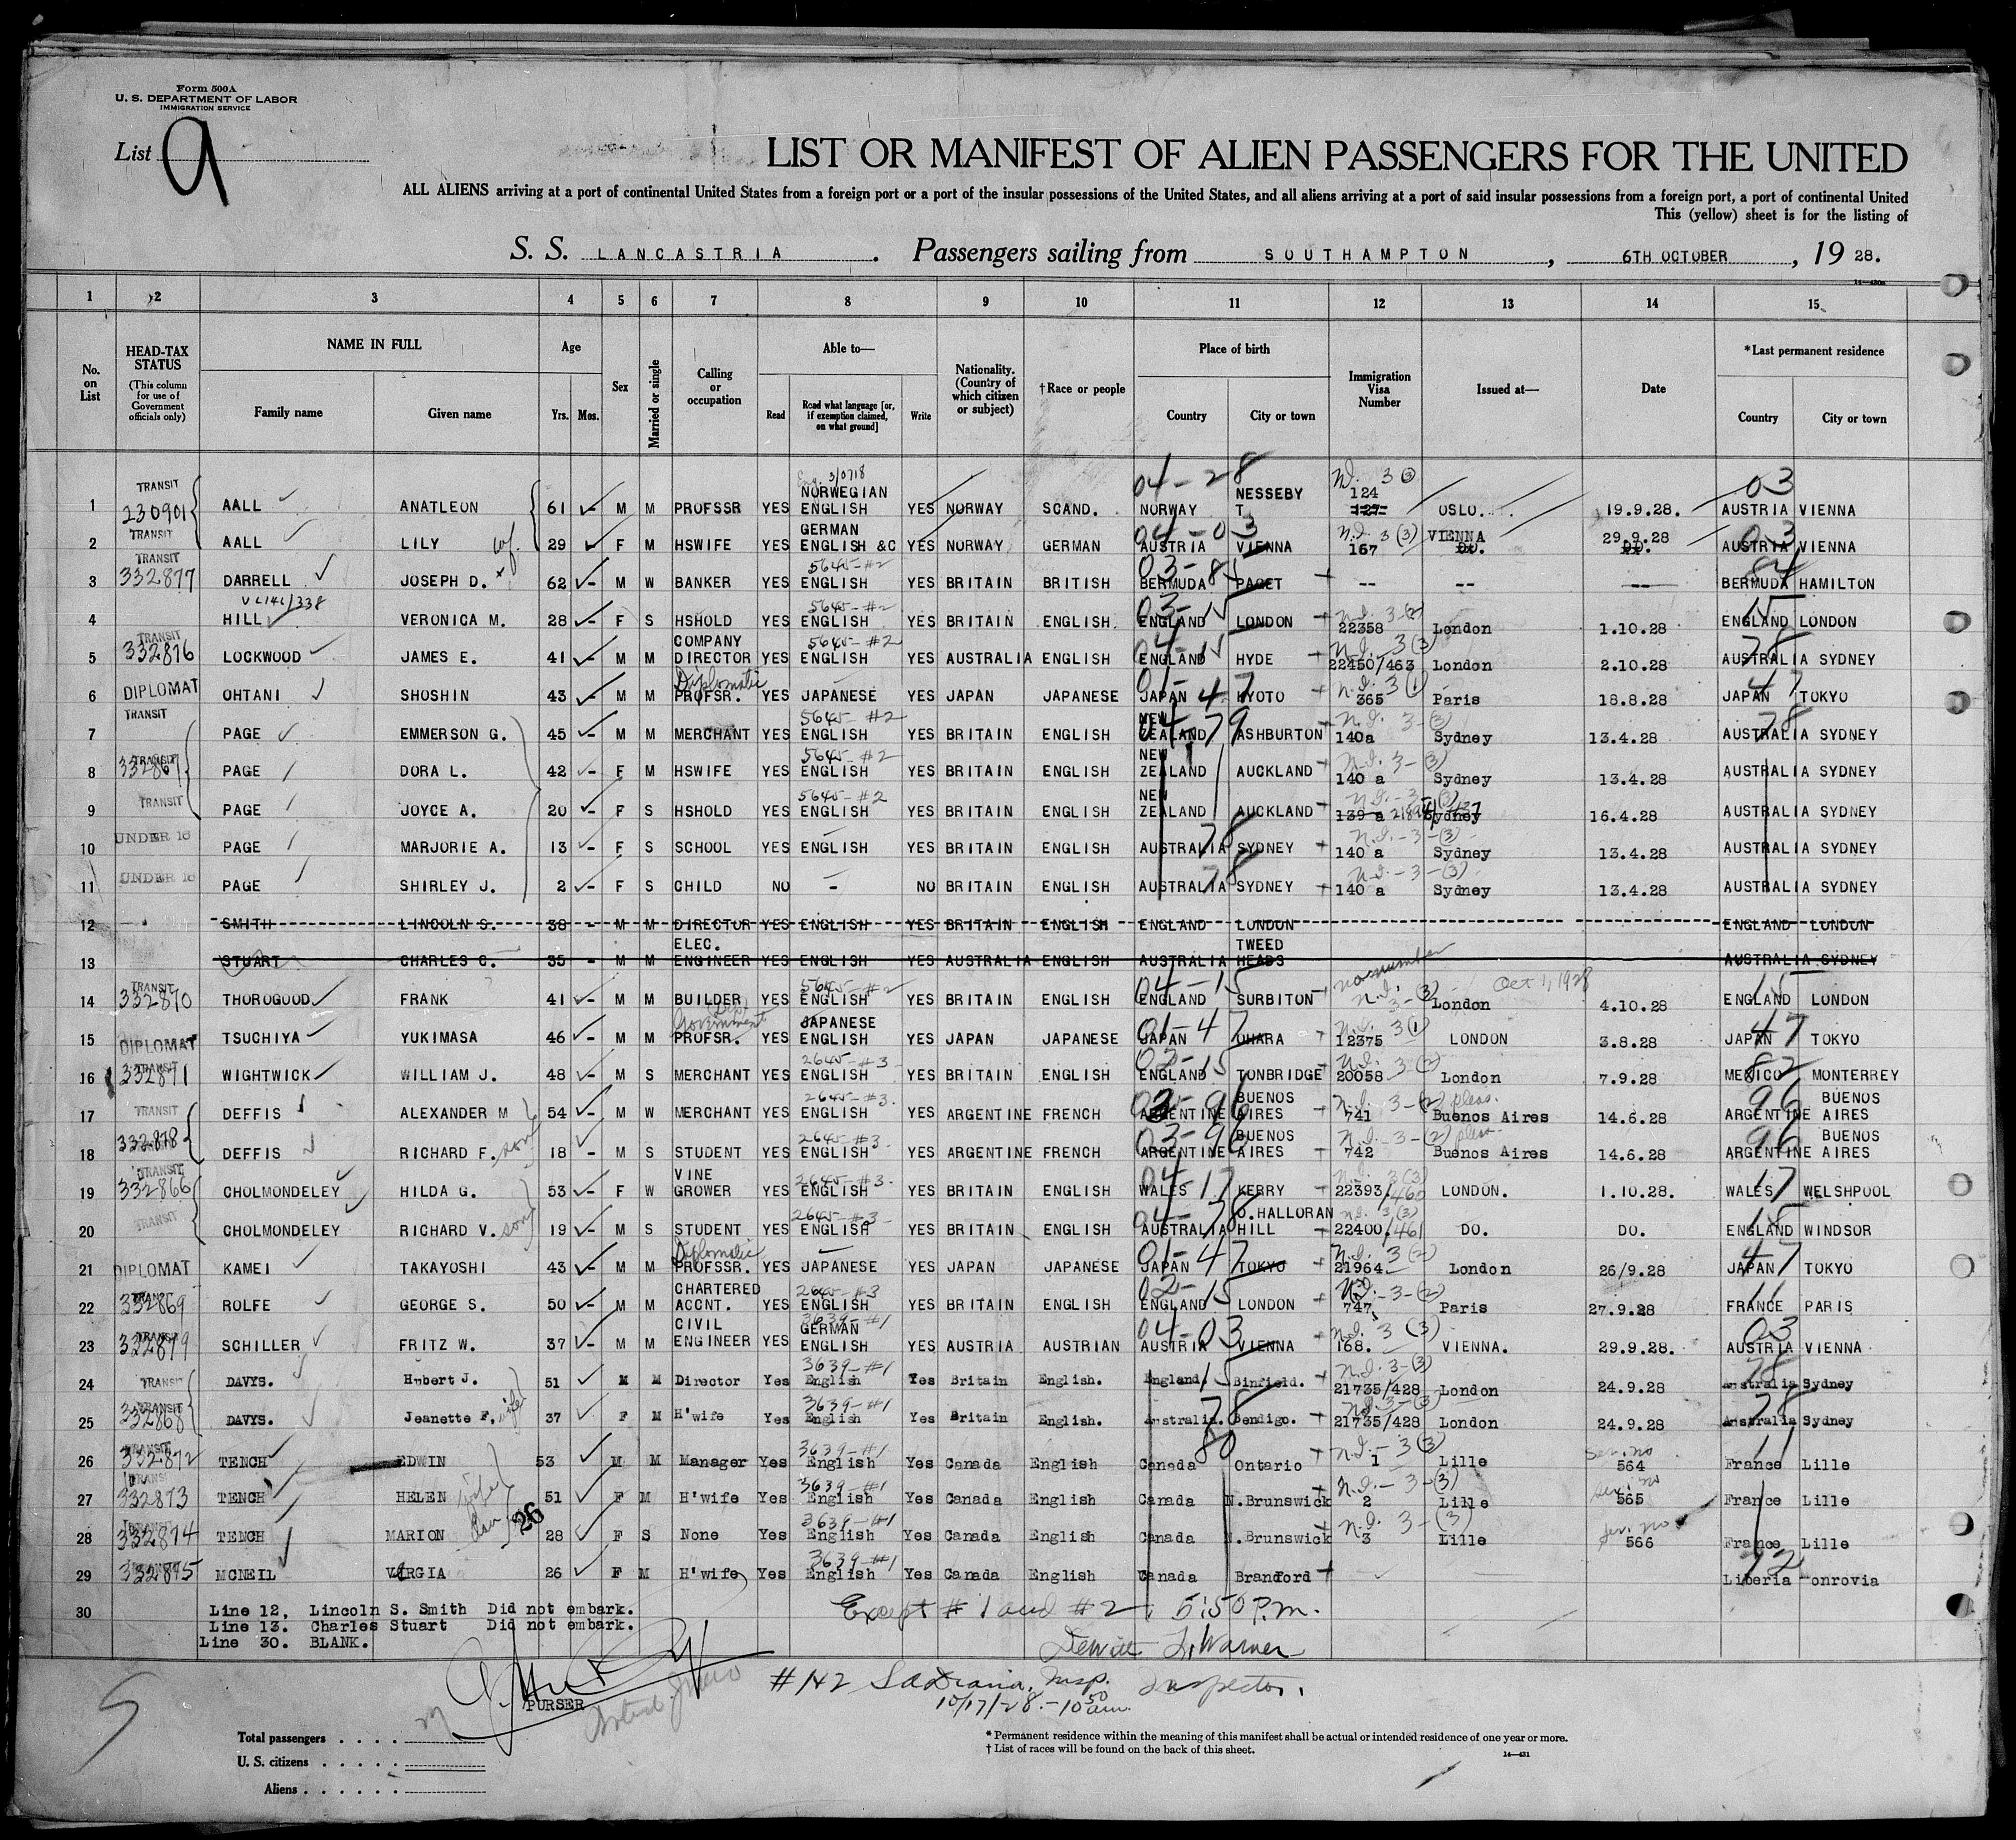 Form 500A
U. S. DEPARTMENT OF LABOR
IMMIGRATION SERVICE
List 9
LIST OR MANIFEST OF ALIEN PASSENGERS FOR THE UNITED
ALL ALIENS arriving at a port of continental United States from a foreign port or a port of the insular possessions of the United States, and all aliens arriving at a port of said insular possessions from a foreign port, a port of continental United
This (yellow) sheet is for the listing of
S. S. LANCASTRIA. Passengers sailing from SOUTHAMPTON, 6TH OCTOBER, 19 28.
1 2 3 4 5 6 7 8 9 10 11 12 13 14 15
No. on List
HEAD-TAX STATUS (This column for use of Government officials only)
NAME IN FULL Family name Given name
Age Yrs. Mos.
Sex
Married or single
Calling or occupation
Able to— Read Read what language [or, if exemption claimed, on what ground] Write
Nationality. (Country of which citizen or subject)
†Race or people
Place of birth Country City or town
Immigration Visa Number
Issued at—
Date
*Last permanent residence Country City or town
1 TRANSIT 230901 AALL ANATLEON 61 M M PROFSSR YES NORWEGIAN ENGLISH YES NORWAY SCAND. 04-28 NORWAY NESSEBY T. 124 127 OSLO. 19.9.28. 03 AUSTRIA VIENNA
2 TRANSIT AALL LILY wf. 29 F M HSWIFE YES GERMAN ENGLISH &C YES NORWAY GERMAN 04-03 AUSTRIA VIENNA N.I. 3 (3) 167 VIENNA DO. 29.9.28 DO. 03 AUSTRIA VIENNA
3 TRANSIT 332877 DARRELL JOSEPH D. 62 M W BANKER YES 5645-#2 ENGLISH YES BRITAIN BRITISH BERMUDA PAGET -- -- -- 84 BERMUDA HAMILTON
4 HILL VERONICA M. 28 F S HSHOLD YES 5645-#2 ENGLISH YES BRITAIN ENGLISH. 03-15 ENGLAND LONDON 22358 London 1.10.28 15 ENGLAND LONDON
5 TRANSIT 332876 LOCKWOOD JAMES E. 41 M M COMPANY DIRECTOR YES 5645-#2 ENGLISH YES AUSTRALIA ENGLISH 04-15 ENGLAND HYDE N.I. 3 (3) 22450/463 London 2.10.28 78 AUSTRALIA SYDNEY
6 DIPLOMAT OHTANI SHOSHIN 43 M M Diplomatic PROFSR. YES JAPANESE YES JAPAN JAPANESE 01-47 JAPAN KYOTO N.I. 3 (1) 365 Paris 18.8.28 47 JAPAN TOKYO
7 TRANSIT PAGE EMMERSON G. 45 M M MERCHANT YES 5645-#2 ENGLISH YES BRITAIN ENGLISH 04-79 NEW ZEALAND ASHBURTON N.I. 3-(3) 140a Sydney 13.4.28 78 AUSTRALIA SYDNEY
8 TRANSIT PAGE DORA L. 42 F M HSWIFE YES 5645-#2 ENGLISH YES BRITAIN ENGLISH NEW ZEALAND AUCKLAND N.I. 3-(3) 140 a Sydney 13.4.28 AUSTRALIA SYDNEY
9 TRANSIT PAGE JOYCE A. 20 F S HSHOLD YES 5645-#2 ENGLISH YES BRITAIN ENGLISH NEW ZEALAND AUCKLAND N.I.-3-(3) 139 a Sydney 16.4.28 AUSTRALIA SYDNEY
10 UNDER 16 PAGE MARJORIE A. 13 F S SCHOOL YES ENGLISH YES BRITAIN ENGLISH 78 AUSTRALIA SYDNEY N.I.-3-(3) 140 a Sydney 13.4.28 AUSTRALIA SYDNEY
11 UNDER 16 PAGE SHIRLEY J. 2 F S CHILD NO - NO BRITAIN ENGLISH 78 AUSTRALIA SYDNEY N.I.-3-(3) 140 a Sydney 13.4.28 AUSTRALIA SYDNEY
12 SMITH LINCOLN S. 38 - M M DIRECTOR YES ENGLISH YES BRITAIN ENGLISH ENGLAND LONDON ENGLAND LONDON
13 STUART CHARLES C. 35 - M M ELEC. ENGINEER YES ENGLISH YES AUSTRALIA ENGLISH AUSTRALIA TWEED HEADS AUSTRALIA SYDNEY
14 TRANSIT 332870 THOROGOOD FRANK 41 M M BUILDER YES 5645-#2 ENGLISH YES BRITAIN ENGLISH 04-15 ENGLAND SURBITON no number N.I. 3-(3) London Oct 1, 1928 4.10.28 15 ENGLAND LONDON
15 DIPLOMAT TSUCHIYA YUKIMASA 46 M M Government PROFSR. YES JAPANESE ENGLISH YES JAPAN JAPANESE 01-47 JAPAN OHARA N.I. 3 (1) 12375 LONDON 3.8.28 47 JAPAN TOKYO
16 TRANSIT 332871 WIGHTWICK WILLIAM J. 48 M S MERCHANT YES 2645-#3 ENGLISH YES BRITAIN ENGLISH 03-15 ENGLAND TONBRIDGE N.I. 20058 London 7.9.28 82 MEXICO MONTERREY
17 TRANSIT DEFFIS ALEXANDER M 54 M W MERCHANT YES 2645-#3. ENGLISH YES ARGENTINE FRENCH 03-96 ARGENTINE BUENOS AIRES N.I. 3-(2) pleas. 741 Buenos Aires 14.6.28 96 ARGENTINE BUENOS AIRES
18 332878 DEFFIS RICHARD F. son 18 - M S STUDENT YES 2645-#3 ENGLISH YES ARGENTINE FRENCH 03-96 ARGENTINE BUENOS AIRES N.I.-3-(2) pleas. 742 Buenos Aires 14.6.28 96 ARGENTINE BUENOS AIRES
19 TRANSIT 332866 CHOLMONDELEY HILDA G. 53 F W VINE GROWER YES 2645-#3. ENGLISH YES BRITAIN ENGLISH 04-17 WALES KERRY N.I. 3(3) 22393/460 LONDON. 1.10.28. 17 WALES WELSHPOOL
20 TRANSIT CHOLMONDELEY RICHARD V. son 19 M S STUDENT YES 2645-#3- ENGLISH YES BRITAIN ENGLISH 04-78 AUSTRALIA O.HALLORAN HILL N.I. 3(3) 22400/461 DO. DO. 15 ENGLAND WINDSOR
21 DIPLOMAT KAMEI TAKAYOSHI 43 M M Diplomatic PROFSSR. YES JAPANESE YES JAPAN JAPANESE 01-47 JAPAN TOKYO N.I. 3(2) 21964 London 26/9.28 47 JAPAN TOKYO
22 332869 ROLFE GEORGE S. 50 M M CHARTERED ACCNT. YES 2645-#3 ENGLISH YES BRITAIN ENGLISH 02-15 ENGLAND LONDON N.I.-3-(2) 747 Paris 27.9.28 11 FRANCE PARIS
23 TRANSIT 332879 SCHILLER FRITZ W. 37 M M CIVIL ENGINEER YES 3639-#1 GERMAN ENGLISH YES AUSTRIA AUSTRIAN 04-03 AUSTRIA VIENNA N.I. 3 (3) 168. VIENNA. 29.9.28. 03 AUSTRIA VIENNA
24 TRANSIT DAVYS. Hubert J. 51 M M Director Yes 3639-#1 English Yes Britain English. 15 England. Binfield. N.I. 3-(3) 21735/428 London 24.9.28 78 Australia Sydney
25 TRANSIT 332868 DAVYS. Jeanette F. wife 37 F M H'wife Yes 3639-#1 English Yes Britain English. 78 Australia. Bendigo. N.I. 3-(3) 21735/428 London 24.9.28 78 Australia Sydney
26 TRANSIT 332872 TENCH EDWIN 53 M M Manager Yes 3639-#1 English Yes Canada English 80 Canada Ontario N.I.-3(3) 1 Lille Ser. no 564 11 France Lille
27 TRANSIT 332873 TENCH HELEN wife 51 F M H'wife Yes 3639-#1 English Yes Canada English Canada N.Brunswick N.I.-3-(3) 2 Lille Ser. no 565 France Lille
28 TRANSIT 332874 TENCH MARION 26 28 F S None Yes 3639-#1 English Yes Canada English Canada N.Brunswick N.I. 3-(3) 3 Lille Ser. no 566 France Lille
29 332875 MCNEIL 26 F M H'wife Yes 3639-#1 English Yes Canada English Canada Brandford 72 Liberia onrovia
30 Line 12, Lincoln S. Smith Did not embark.
Line 13. Charles Stuart Did not embark.
Line 30. BLANK.
Except #1 and #2 5:50 P.m.
Dewitt L. Warner
Inspector.
PURSER
#1+2
Insp.
10/17/28.-10 50 am.
Total passengers
U. S. citizens
Aliens
* Permanent residence within the meaning of this manifest shall be actual or intended residence of one year or more.
† List of races will be found on the back of this sheet.
14—431